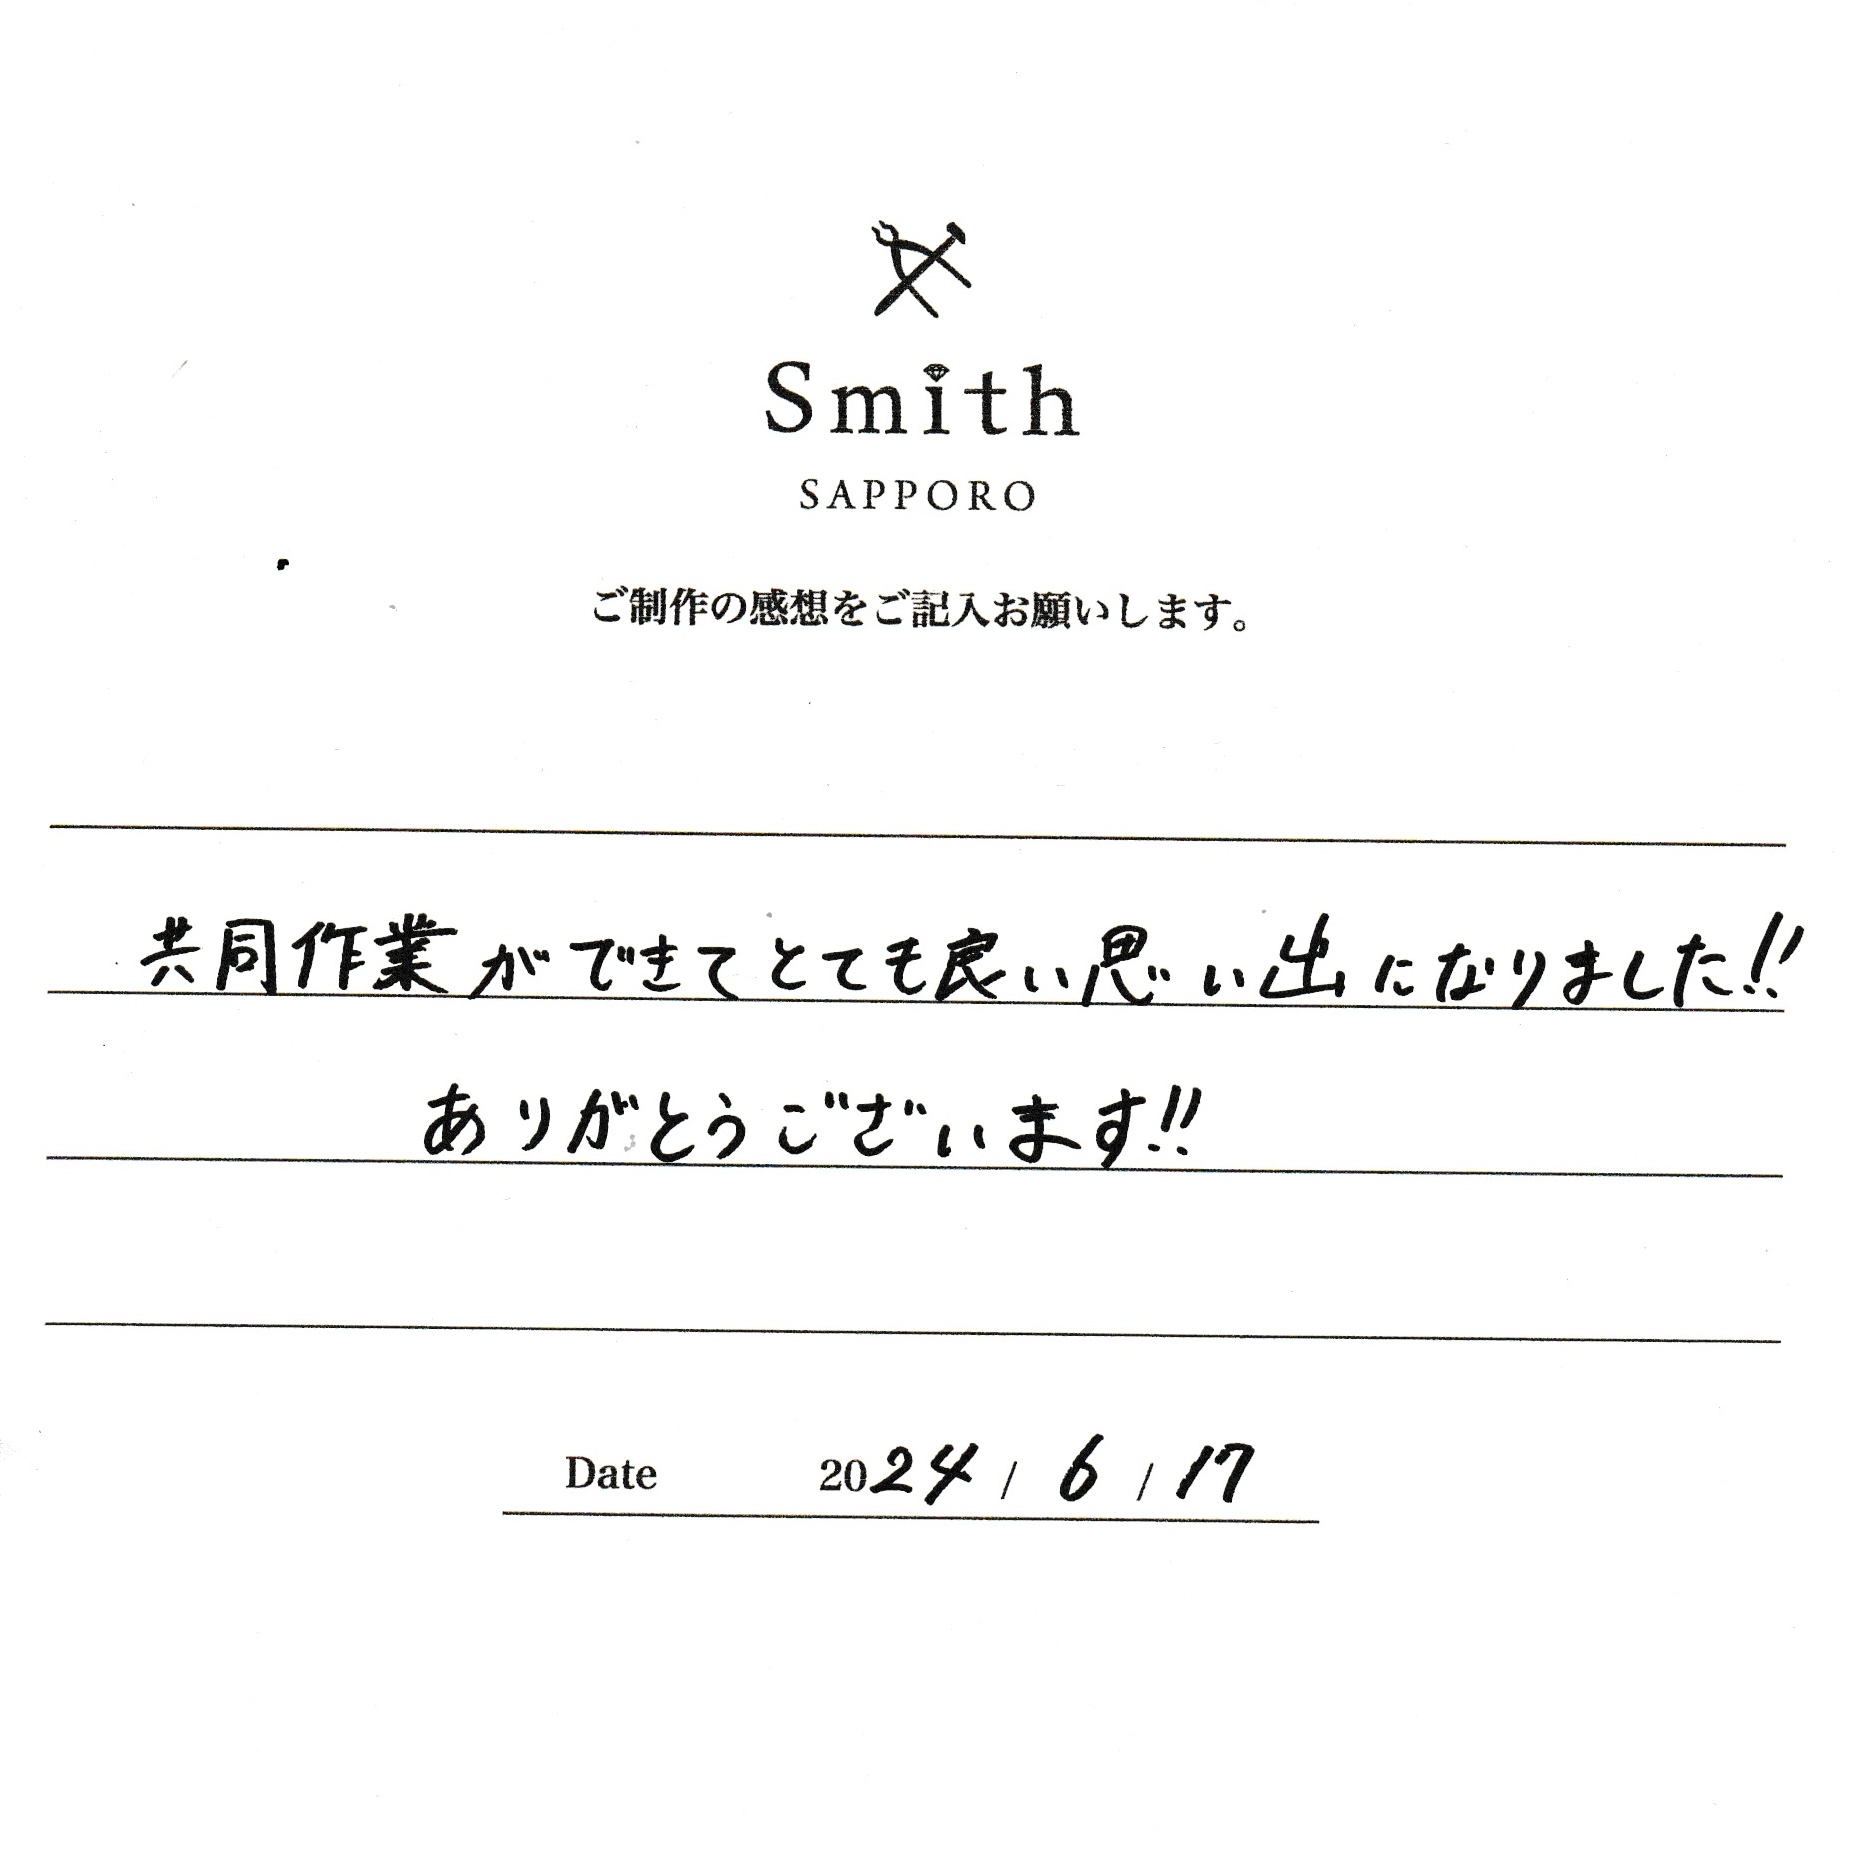 Smith
SAPPORO
ご制作の感想をご記入お願いします。
共同作業ができてとても良い思い出になりました!!
ありがとうございます!!
Date 2024 / 6 / 17